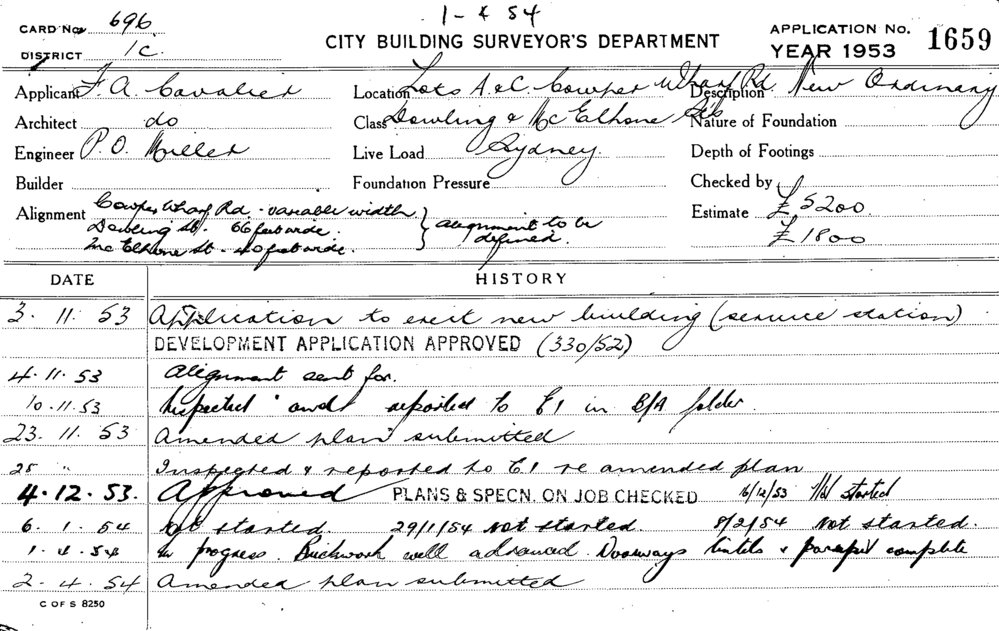 1-4 54
CARD No. 696
DISTRICT 1C.
CITY BUILDING SURVEYOR'S DEPARTMENT
APPLICATION No. 1659
YEAR 1953
Applicant F. A. Cavalier
Location Lots A & C Cowper Wharf Rd.
Description New Ordinary
Architect do
Class Dowling & McElhone Sts
Nature of Foundation
Engineer P. O. Miller
Live Load Sydney.
Depth of Footings
Builder
Foundation Pressure
Checked by
Alignment Cowper Wharf Rd. - variable width
Dowling St. - 66 feet wide.
McElhone St - 40 feet wide.
alignment to be
defined.
Estimate £5200.
£1800
DATE HISTORY
3. 11. 53 Application to erect new building (service station)
DEVELOPMENT APPLICATION APPROVED (330/52)
4.11.53 Alignment sent for.
10.11.53 Inspected and reported to E1 in B/A folder.
23. 11. 53 Amended plan submitted
25 " Inspected & reported to E1 re amended plan
4.12.53. Approved PLANS & SPECN. ON JOB CHECKED 16/12/53 Not started
6. 1. 54 Not started. 29/1/54 Not started. 8/2/54 Not started.
1. 4. 54 In progress. Brickwork well advanced. Doorways lintels & parapet complete
2. 4. 54 Amended plan submitted
C OF S 8250